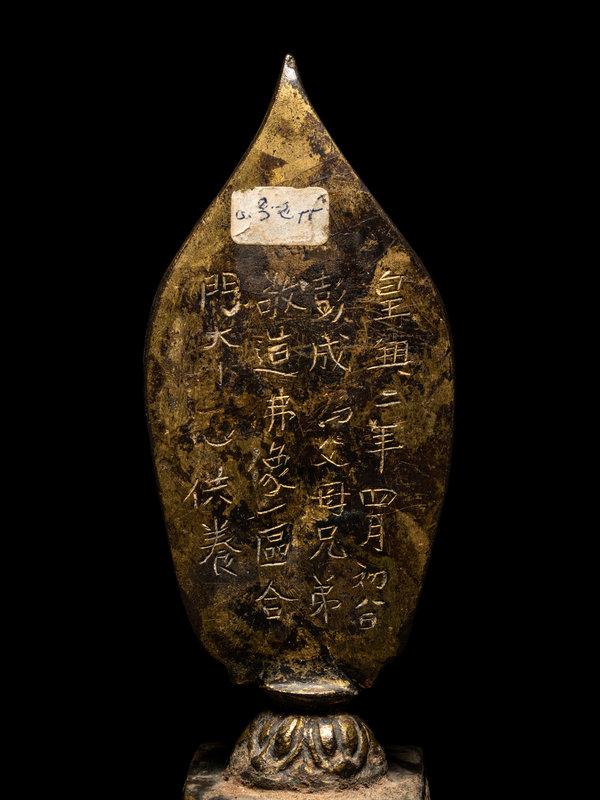 皇興二年四月初八日
彭成為父母兄弟
敬造弗像一區合
門大小心供養